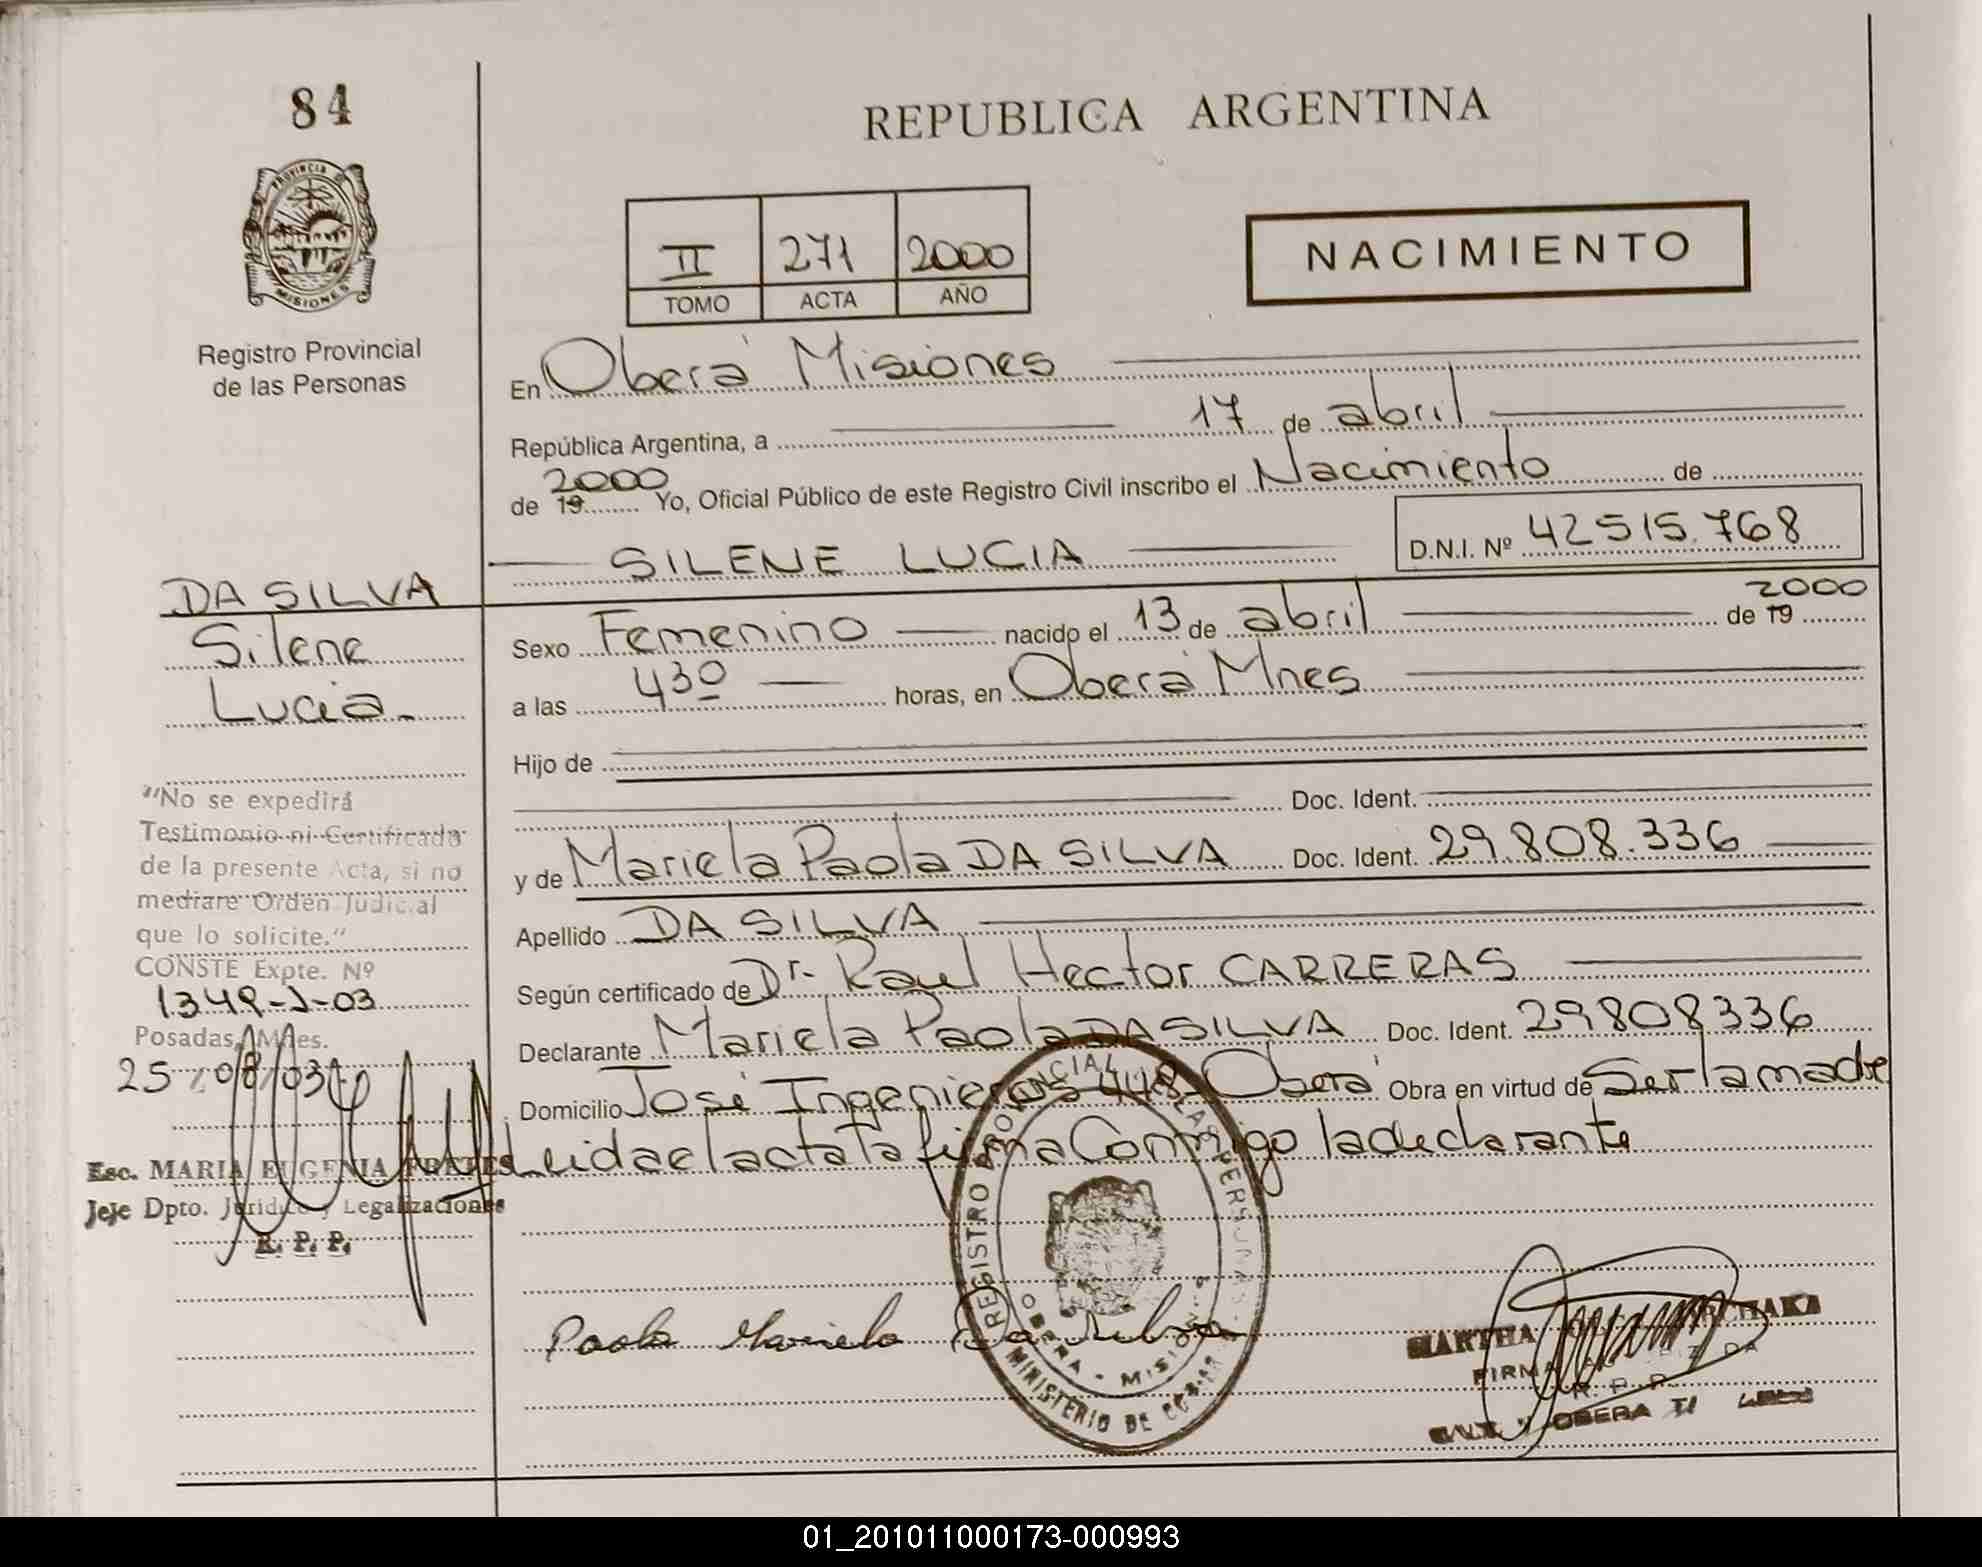 84
REPUBLICA ARGENTINA
PROVINCIA DE
MISIONES
Registro Provincial
de las Personas
II 271 2000
TOMO ACTA AÑO
NACIMIENTO
En Oberá Misiones
República Argentina, a 17 de abril
de 19 2000 Yo, Oficial Público de este Registro Civil inscribo el Nacimiento de
SILENE LUCIA D.N.I. Nº 42515.768
DA SILVA
Silene
Lucia
Sexo Femenino nacido el 13 de abril de 19 2000
a las 430 horas, en Oberá Mnes
Hijo de
Doc. Ident.
y de Mariela Paola DA SILVA Doc. Ident. 29.808.336
Apellido DA SILVA
Según certificado de Dr. Raul Hector CARRERAS
Declarante Mariela Paola DA SILVA Doc. Ident. 29808336
Domicilio José Ingenieros 448 Oberá Obra en virtud de Ser la madre
Leida el acta la firma Conmigo la declarante
"No se expedirá
Testimonio ni Certificado
de la presente Acta, si no
mediare Orden Judicial
que lo solicite."
CONSTE Expte. Nº
1349-J-03
Posadas, Mnes.
25/08/03
Esc. MARIA EUGENIA
Jeje Dpto. Juridico y Legalizaciones
R. P. P.
Paola Mariela Da Silva
REGISTRO PROVINCIAL DE LAS PERSONAS
OBERA - MISIONES
MINISTERIO DE
MARTHA
FIRMA
R. P. P.
OBERA
01_201011000173-000993